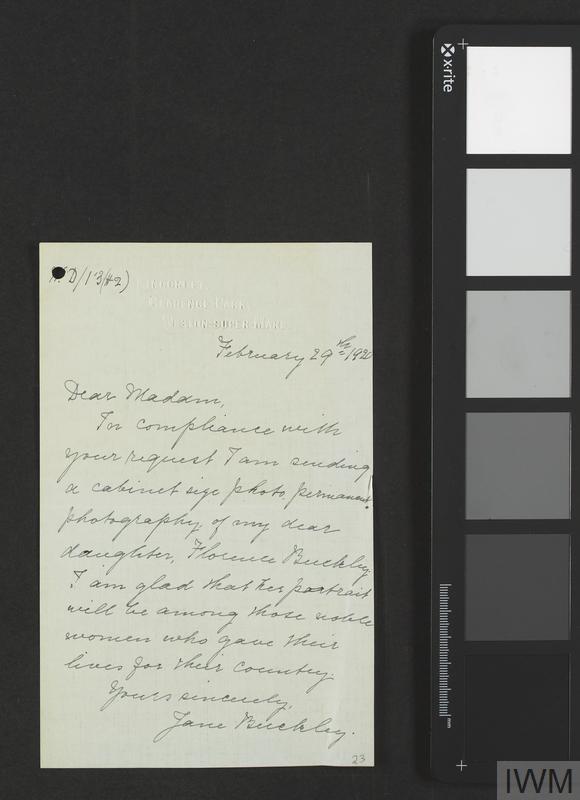 D/13(42)
CLARENCE PARK,
WESTON-SUPER-MARE.
February 29th 1920
Dear Madam,
In compliance with
your request I am sending
a cabinet size photo, permanent
photography, of my dear
daughter, Florence Buckley.
I am glad that her portrait
will be among those noble
women who gave their
lives for their country.
Yours sincerely,
Jane Buckley.
23
x-rite
mm
IWM